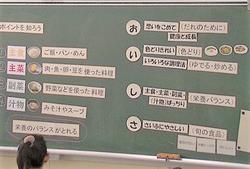 ポイントを知ろう
主食 ごはん・パン・めん
主菜 肉・魚・卵・豆を使った料理
副菜 野菜などを使った料理
汁物 みそ汁やスープ
栄養のバランスがとれる
お 思いをこめて (だれのために)
健康と成長
い 色どりきれい (色どり)
いろいろな調理法 (ゆでる・炒める)
し 主食・主菜・副菜・
汁物ばっちり (栄養バランス)
さ さいふにやさしい (旬の食品)